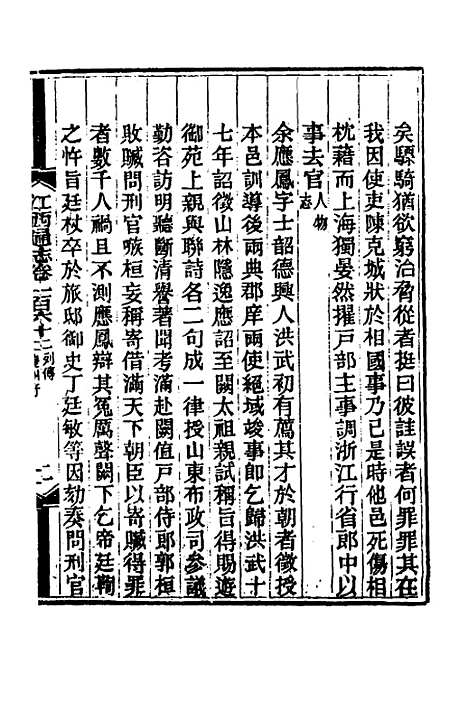 矣驃騎猶欲窮治脅從者挺曰彼詿誤者何罪罪其在
我因使吏陳克城狀於相國事乃已是時他邑死傷相
枕藉而上海獨晏然擢戶部主事調浙江行省郎中以
事去官人物志
余應鳳字士韶德興人洪武初有薦其才於朝者徵授
本邑訓導後兩典郡庠兩使絕域竣事即乞歸洪武十
七年詔徵山林隱逸應詔至闕太祖親試稱旨得賜遊
御苑上親與聯詩各二句成一律授山東布政司參議
勤咨訪明聽斷清譽著聞考滿赴闕值戶部侍郎郭桓
敗贓問刑官嗾桓妄稱寄借滿天下朝臣以寄贓得罪
者數千人禍且不測應鳳辯其冤厲聲闕下乞帝廷鞫
之忤旨廷杖卒於旅邸御史丁廷敏等因劾奏問刑官
江西通志卷一百六十二列傳